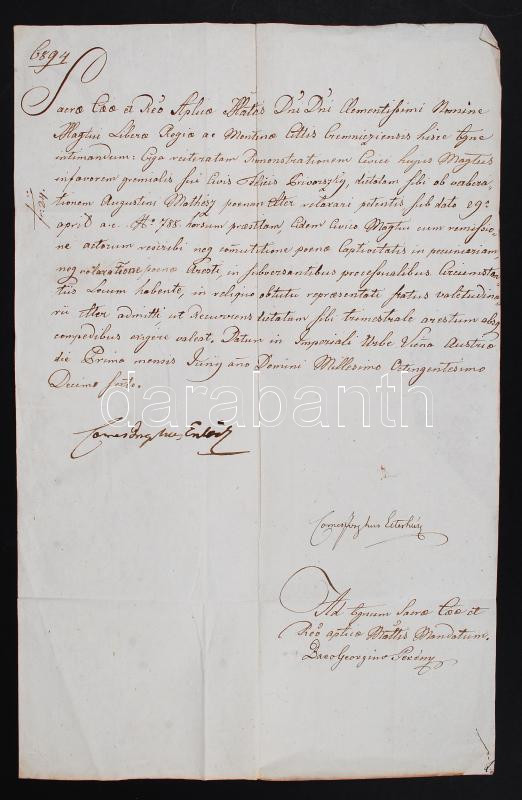 6894
Sacrae Caeo et Reo Aplicae Mattis Dni Dni Clementissimi Nomine
Magtui Liberae Regiae ac Montanae Cittis Cremnicziensis hisce Bgne
intimandum: Ciga reiteratam Demonstrationem Civici hujus Magtus
in favorem gremialis sui Civis dictatam sibi ob verbera-
tionem Augustini Mathesz poenam relaxari petentis sub dato 29a
april a.c. No 788. horsum praestitam Eidem Civico Magtui cum remissio-
ne actorum rescribi neq comutitione poenae Captivitatis in pecuniariam,
neq relaxatione poenae Aresti, in subversantibus processualibus Circumstan-
tiis Locum habente, in reliquo obtutu repraesentati status valetudina-
rii admitti ut Recurrens dictatam sibi trimestrale arestum absq
compedibus exigere valeat. Datum in Imperiali Urbe Viena Austriae
die Prima mensis Juny ano Domini Millesimo Octingentesimo
Decimo
darabanth
Comes
Comes Esterház
Ad Bgnum Sacrae Caeo et
Reo aplicae Mattis Mandatum.
Baro Georgius